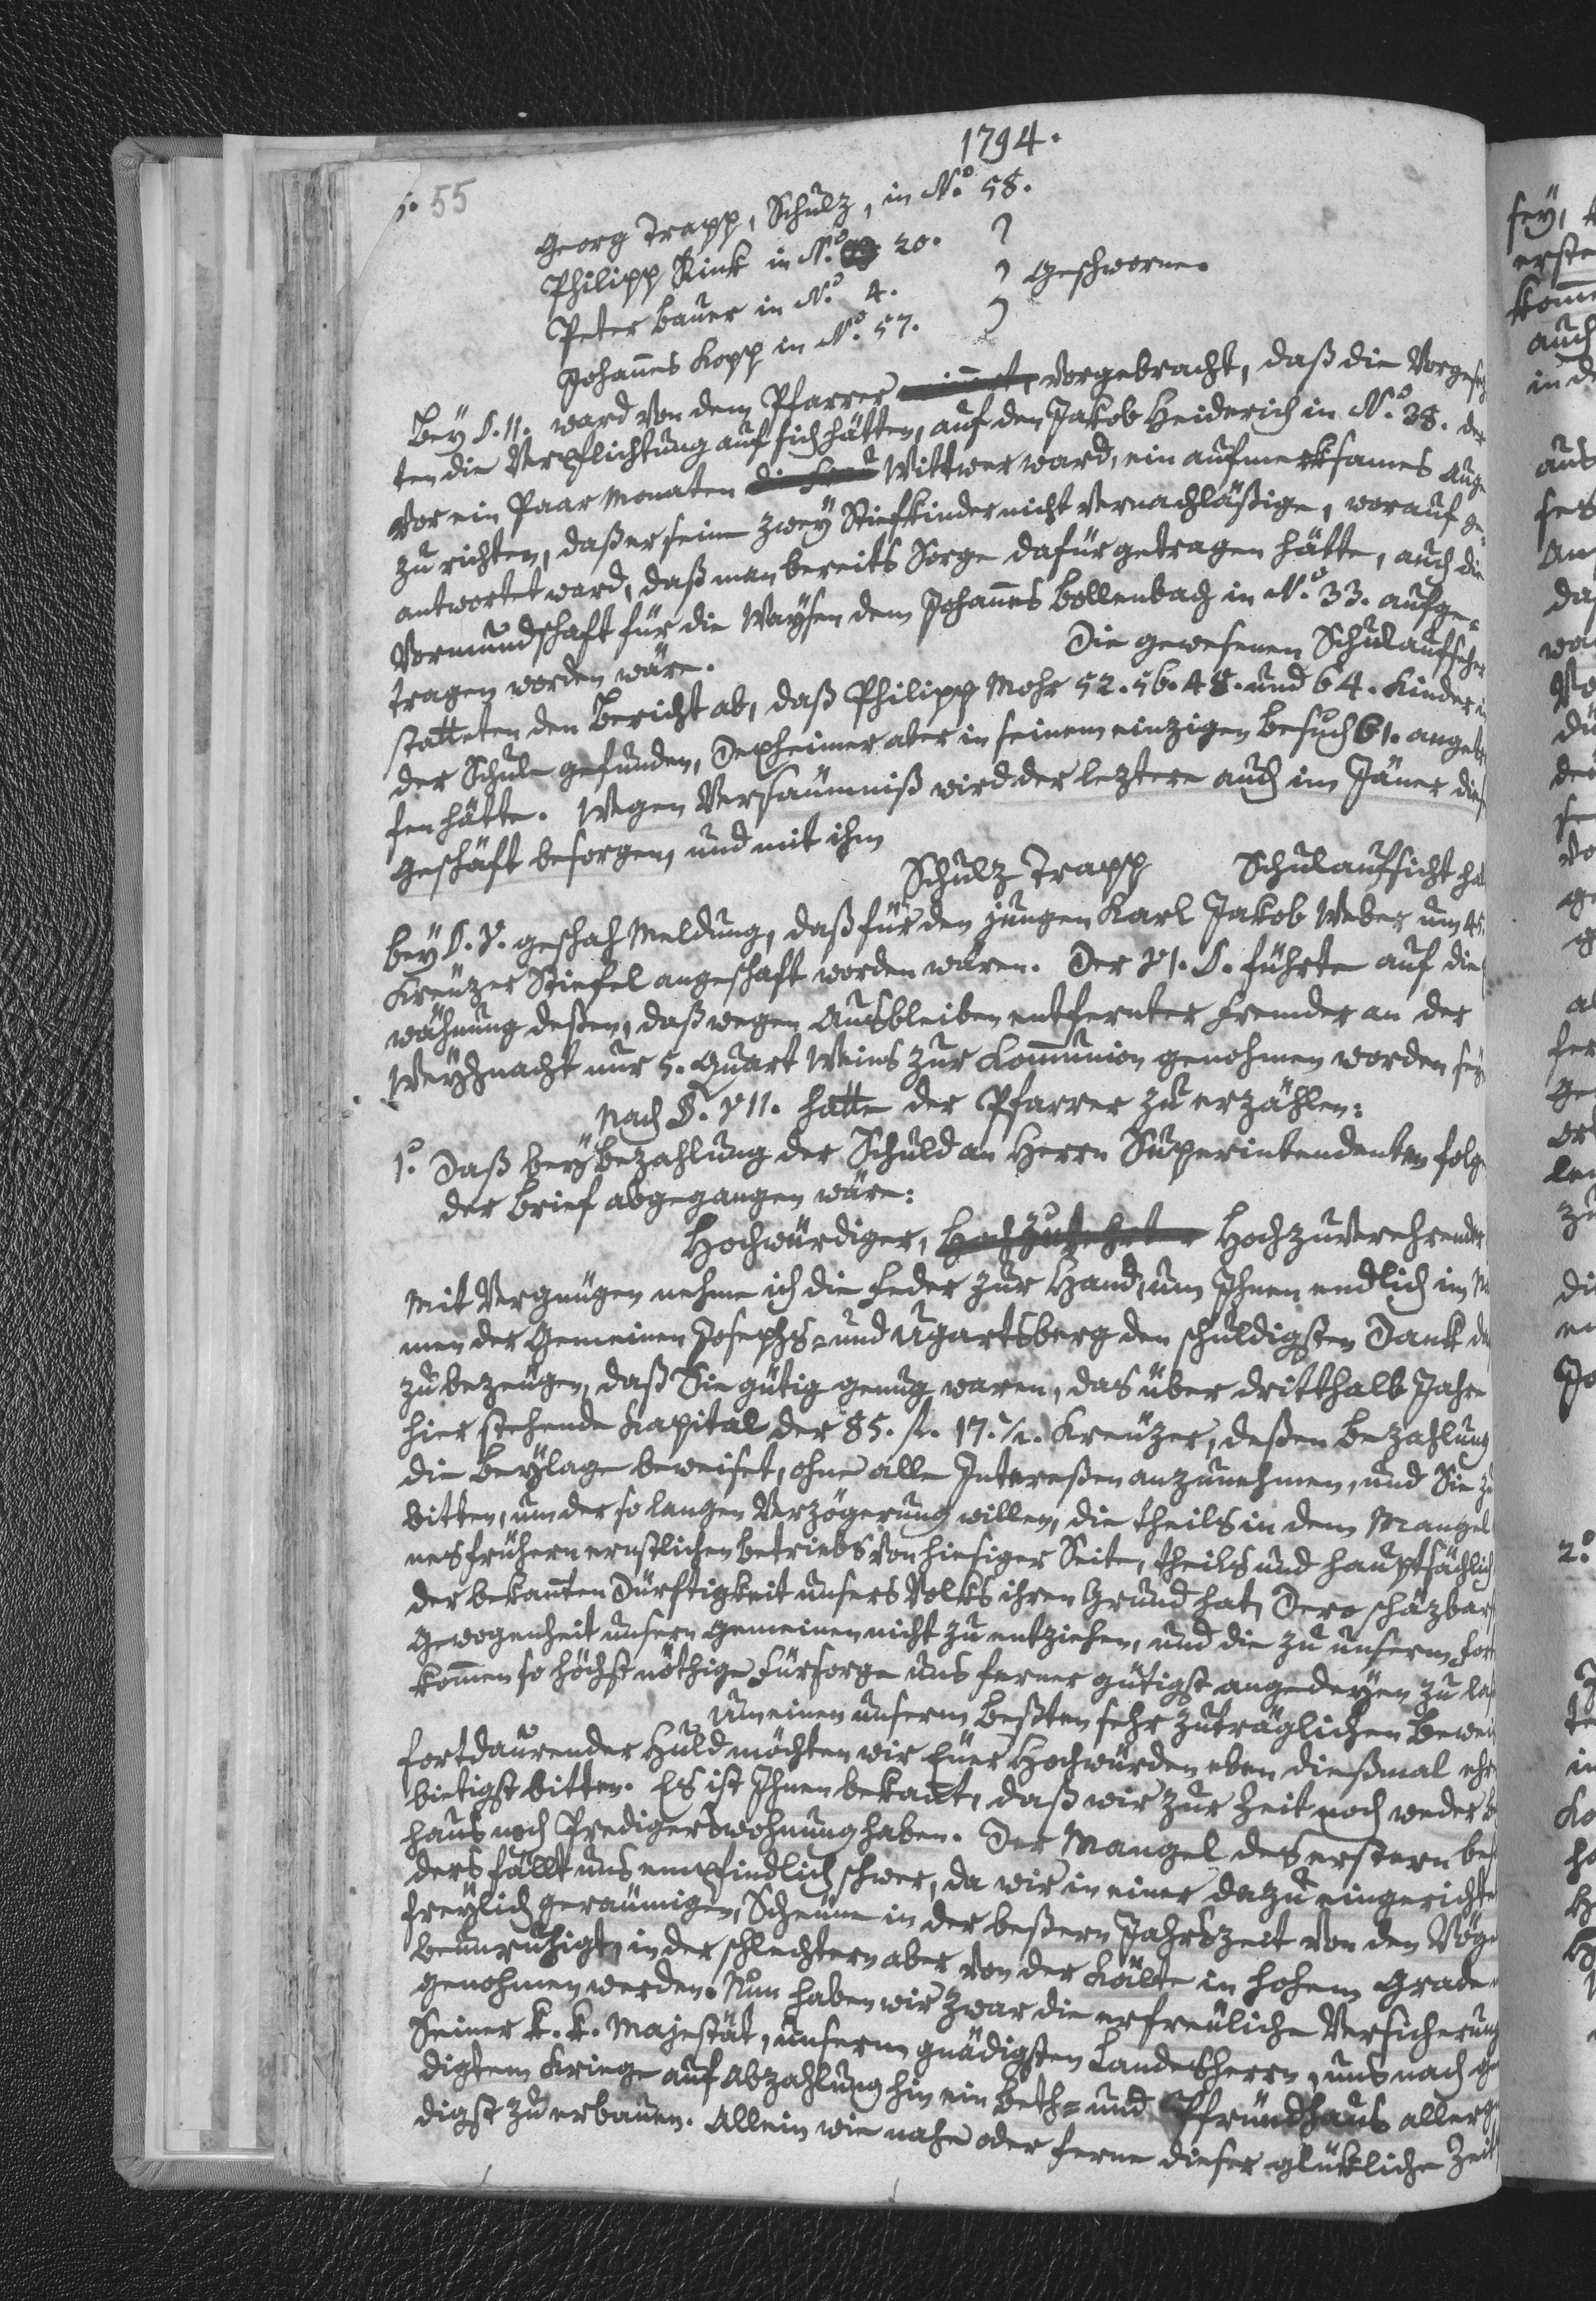 1794.
55
Georg Trapp, Schulz, in No. 58.
Philipp Rink in No. 20.
Peter Bauer in No. 4. Geschworne.
Johañes Kopp in No. 57.
Bey §. II. ward von dem Pfarrer vorgebracht, daß die Vorgesez
ten die Verpflichtung auf sich hätten, auf den Jakob Heiderich in No. 38. der
vor ein Paar Monaten Wittwer ward, ein aufmerksames Auge
zu richten, daß er seine zwey Stiefkinder nicht vernachläßige, worauf ge-
antwortet ward, daß man bereits Sorge dafür getragen hätte, auch die
Vormundschaft für die Waysen dem Johañes Bollenbach in No. 33. aufge-
tragen worden wäre. Die gewesenen Schulaufseher
statteten den Bericht ab, daß Philipp Mohr 52. 56. 48. und 64. Kinder in
der Schule gefunden, Dexheimer aber in seinem einzigen Besuch 61. angetro
fen hätte. Wegen Versäumniß wird der leztere auch im Jäner dies
Geschäft besorgen, und mit ihm
Schulz Trapp Schulaufsicht ha
bey §. V. geschah Meldung, daß für den jungen Karl Jakob Weber um 45.
Kreuzer Stiefel angeschaft worden wären. Der VI. §. führte auf die
wähnung deßen, daß wegen Ausbleiben entfernter Fremder an der
Weyhnacht nur 5. Quart Weins zur Komunion genohmen worden sey
Nach §. VII. hatte der Pfarrer zu erzählen:
1o. Daß bey Bezahlung der Schuld an Herrn Superintendenten folg
der Brief abgegangen wäre:
Hochwürdiger, Hochzuverehrender
Mit Vergnügen nehme ich die Feder zur Hand, um Ihnen endlich im Na
men der Gemeinen Josephs- und Ugartsberg den schuldigsten Dank
zu bezeugen, daß Sie gütig genug waren, das über dritthalb Jahre
hier stehende Kapital der 85. fl. 17. ½. Kreuzer, deßen Bezahlung
die Beylage beweiset, ohne alle Intereßen anzunehmen, und Sie zu
bitten, um der so langen Verzögerung willen, die theils in dem Mangel
nes frühern ernstlichen Betriebs von hiesiger Seite, theils und hauptsächlich
der bekañten Dürftigkeit unsers Volks ihren Grund hat, Dero schäzbar
Gewogenheit unsern Gemeinen nicht zu entziehen, und die zu unserm Fort
komen so höchst nöthige Fürsorge uns ferner gütigst angedeyen zu laß
Um einen unserm Besten sehr zuträglichen Bewei
fortdaurender Huld möchten wir Euer Hochwürden eben dießmal ehr
bietigst bitten. Es ist Ihnen bekañt, daß wir zur Zeit noch weder B
haus noch Predigerswohnung haben. Der Mangel des erstern bes
ders fällt uns empfindlich schwer, da wir in einer dazu eingerichte
freylich geräumigen Scheune in der beßern Jahrszeit von den Vöge
beunruhigt, in der schlechtern aber von der Kälte in hohem Grade
genohmen werden. Nun haben wir zwar die erfreuliche Versicherung
Seiner k. k. Majestät, unserm gnädigsten Landesherrn, uns nach ge
digtem Kriege auf Abzahlung hin ein Beth- und Pfründhaus allerg
digst zu erbauen. Allein wie nahe oder ferne dieser glükliche Zeit